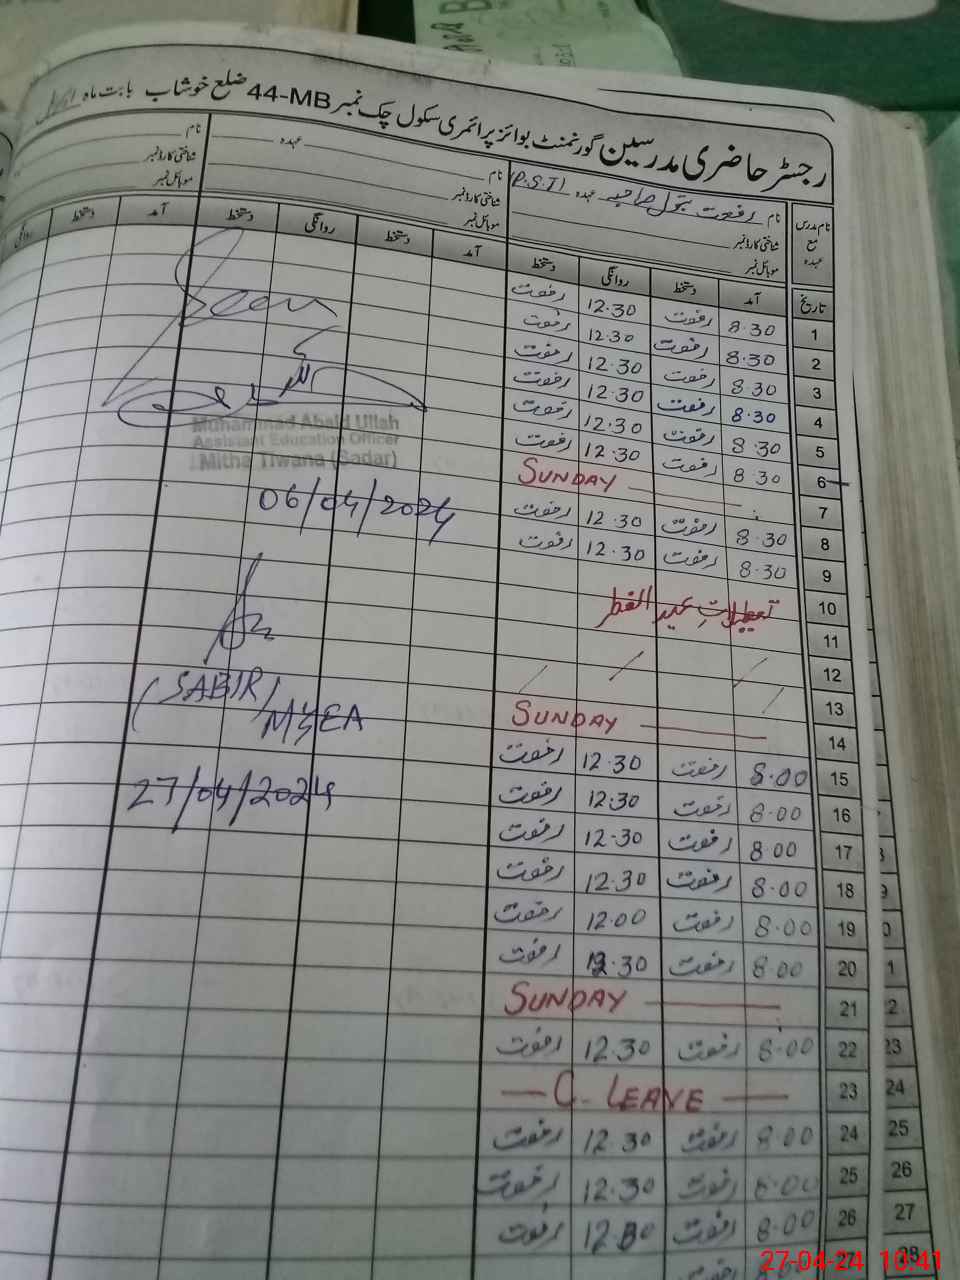 رجسٹر حاضری مدرسین گورنمنٹ بوائز پرائمری سکول چک نمبر 44-MB ضلع خوشاب بابت ماہ
نام مدرس مع عہدہ
نام رفعت بتول صاحبہ عہدہ (P.S.T)
شناختی کارڈ نمبر
موبائل نمبر
نام عہدہ
شناختی کارڈ نمبر
موبائل نمبر
نام
شناختی کارڈ نمبر
موبائل نمبر
تاریخ آمد دستخط روانگی دستخط آمد دستخط روانگی دستخط آمد دستخط روانگی
1 8.30 رفعت 12.30 رفعت
2 8.30 رفعت 12.30 رفعت
3 8.30 رفعت 12.30 رفعت
4 8.30 رفعت 12.30 رفعت
5 8.30 رفعت 12.30 رفعت
6 8.30 رفعت 12.30 رفعت
7 SUNDAY
8 8.30 رفعت 12.30 رفعت
9 8.30 رفعت 12.30 رفعت
10 تعطیلاتِ عید الفطر
11
12
13
14 SUNDAY
15 8.00 رفعت 12.30 رفعت
16 8.00 رفعت 12.30 رفعت
17 8.00 رفعت 12.30 رفعت
18 8.00 رفعت 12.30 رفعت
19 8.00 رفعت 12.00 رفعت
20 8.00 رفعت 12.30 رفعت
21 SUNDAY
22 8.00 رفعت 12.30 رفعت
23 C. LEAVE
24 8.00 رفعت 12.30 رفعت
25 8.00 رفعت 12.30 رفعت
26 8.00 رفعت 12.30 رفعت
27 رفعت
Muhammad Abaid Ullah
Assistant Education Officer
Mitha Tiwana (Sadar)
06/04/2024
(SABIR)
M&EA
27/04/2024
23
24
25
26
27
28
27-04-24 10:41